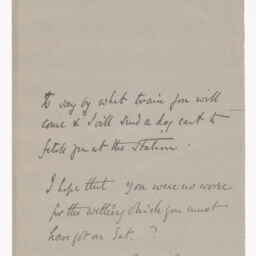 to say by what train you will
come & I will send a dog cart to
fetch you at the Station.
I hope that you were no worse
for the wetting which you must
have got on Sat. ?